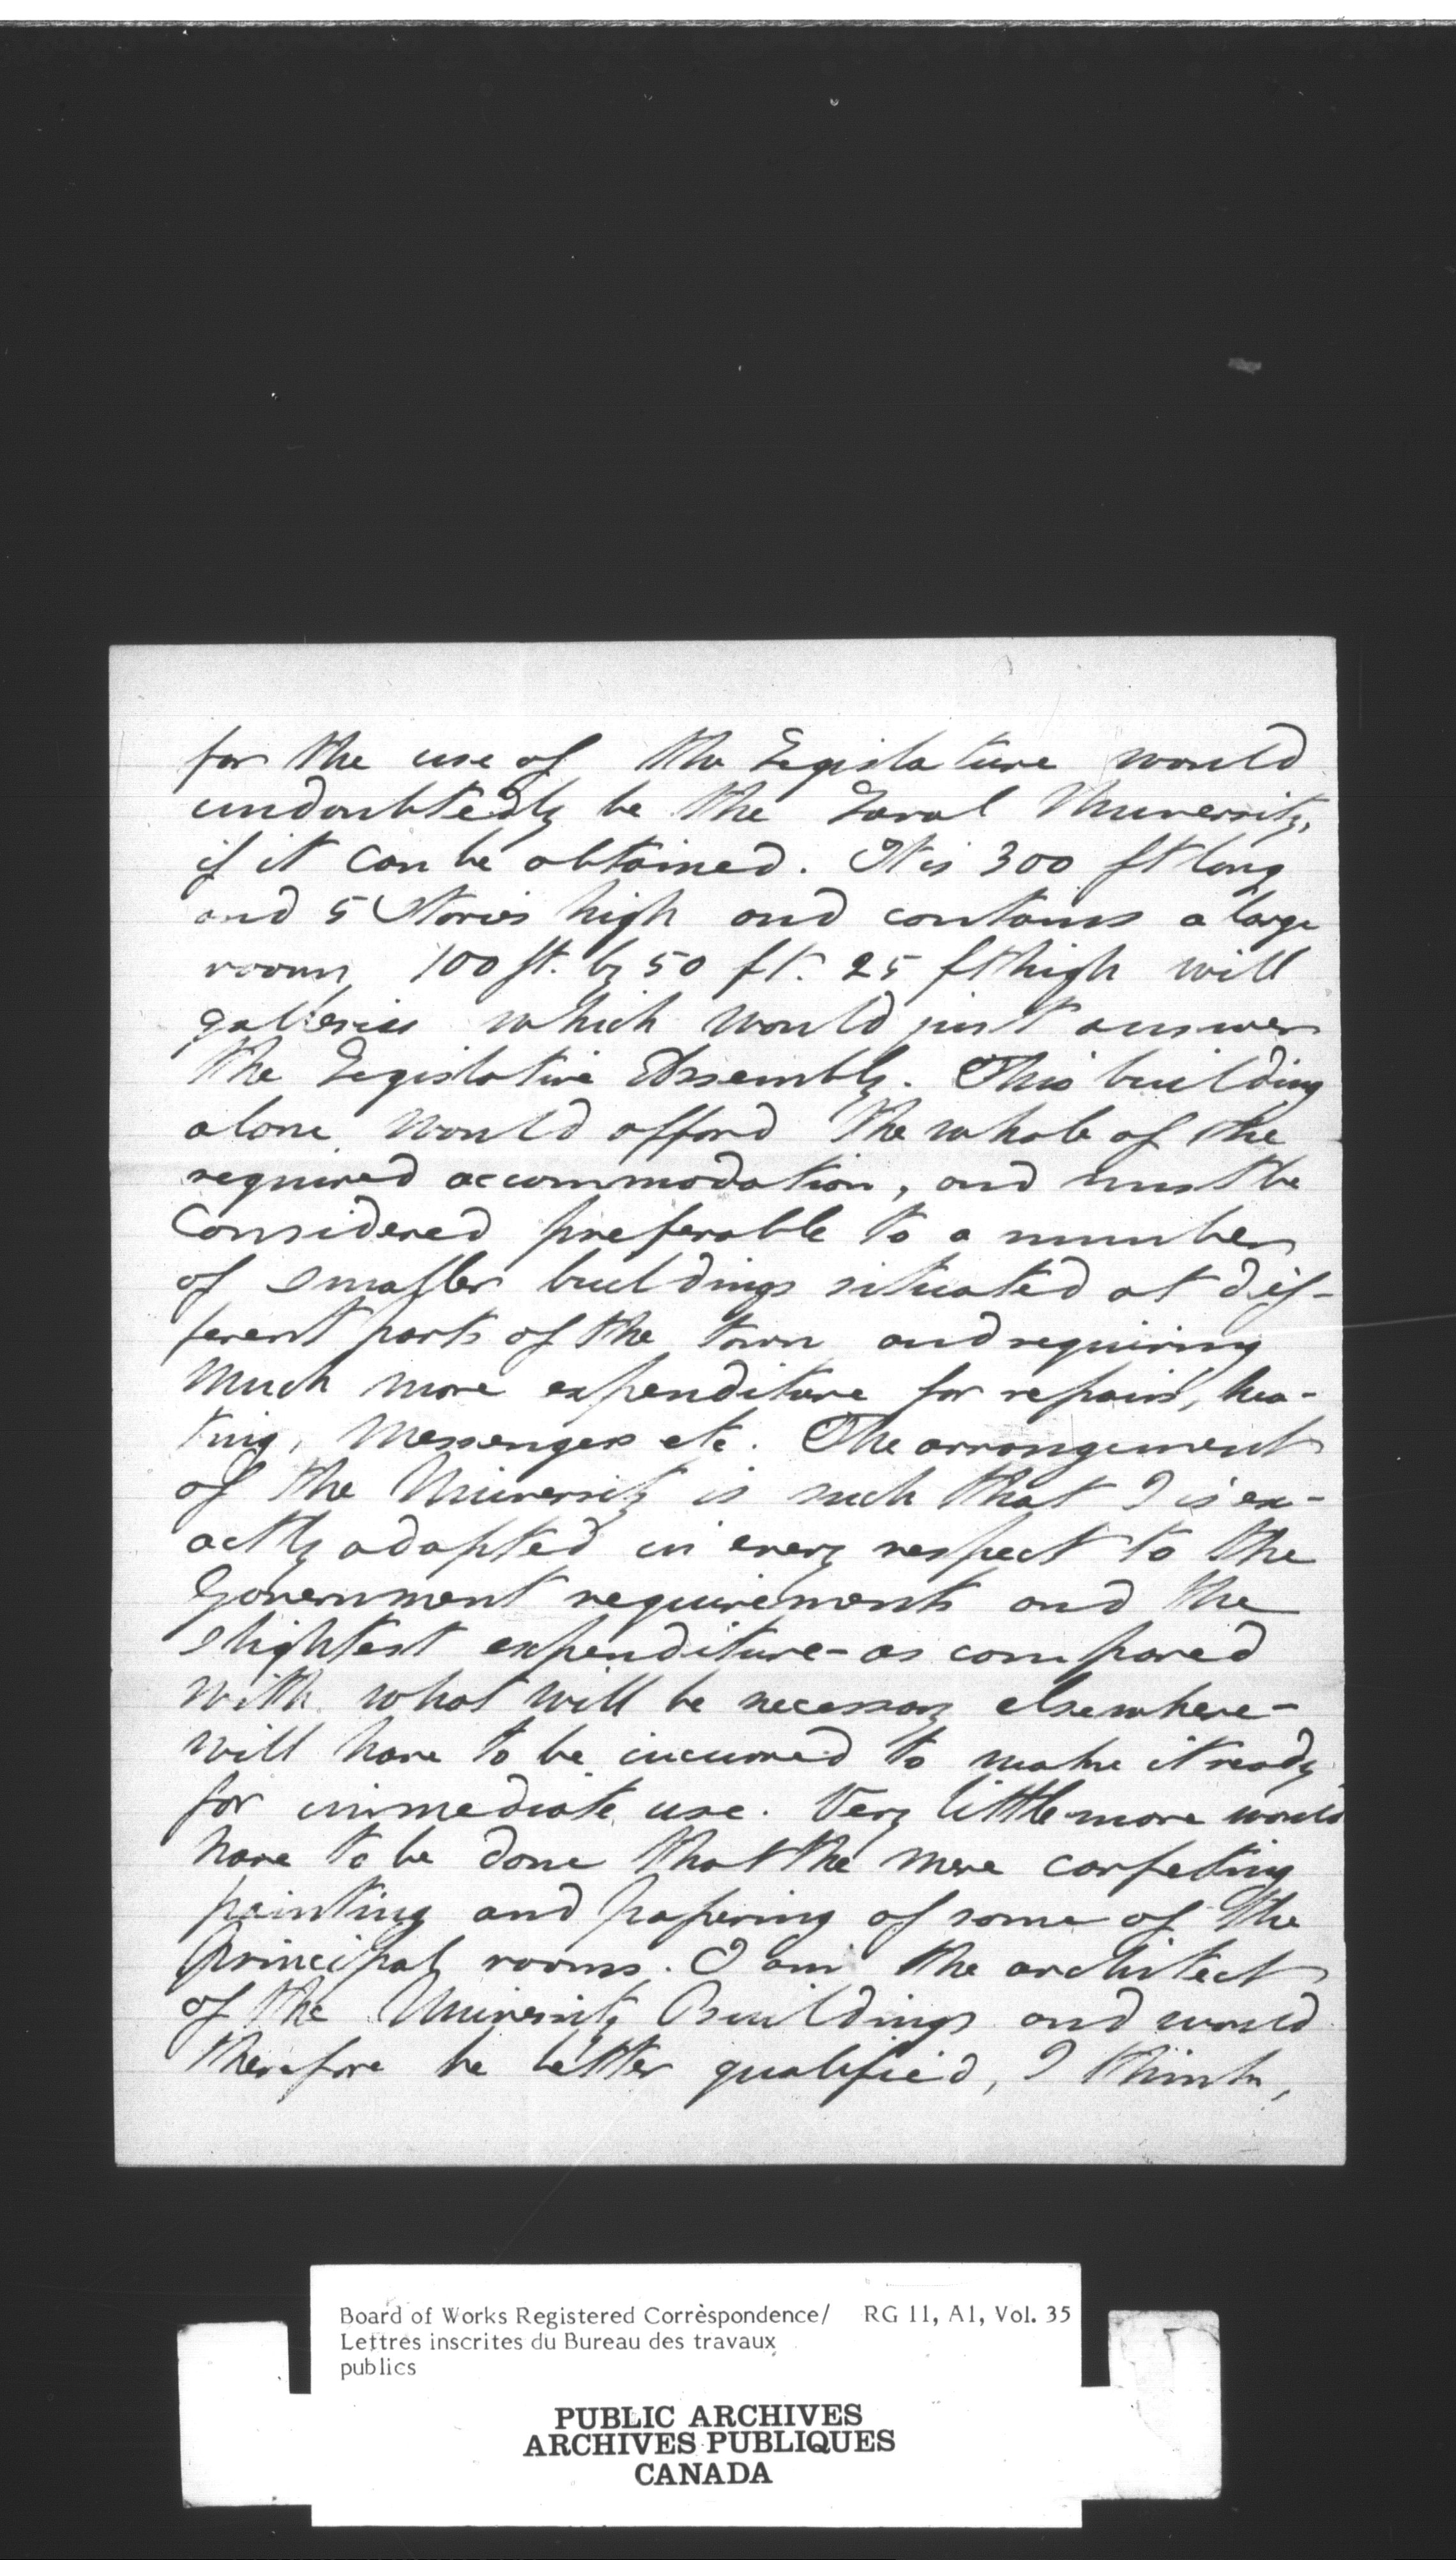 for the use of the Legislature would
undoubtedly be the Laval University,
if it can be obtained. It is 300 ft long
and 5 Stories high and contains a large
room 100 ft. by 50 ft. 25 ft high will
galleries which would just answer
the Legislative Assembly. This building
alone would afford the whole of the
required accommodation, and must be
Considered preferable to a number
of smaller buildings situated at dif-
ferent parts of the town and requiring
Much more expenditure for repairs, hea-
ting, Messengers etc. The arrangement
of the University is such that I is ex-
actly adapted in every respect to the
Government requirements and the
slightest expenditure - as compared
with what will be necessary elsewhere -
will have to be incurred to make it ready
for immediate use. Very little more would
have to be done that the mere carpeting
painting and papering of some of the
principal rooms. I am the architect
of the University Buildings and would
therefore be better qualified, I think,
Board of Works Registered Corrèspondence/ RG 11, A1, Vol. 35
Lettres inscrites du Bureau des travaux
publics
PUBLIC ARCHIVES
ARCHIVES PUBLIQUES
CANADA